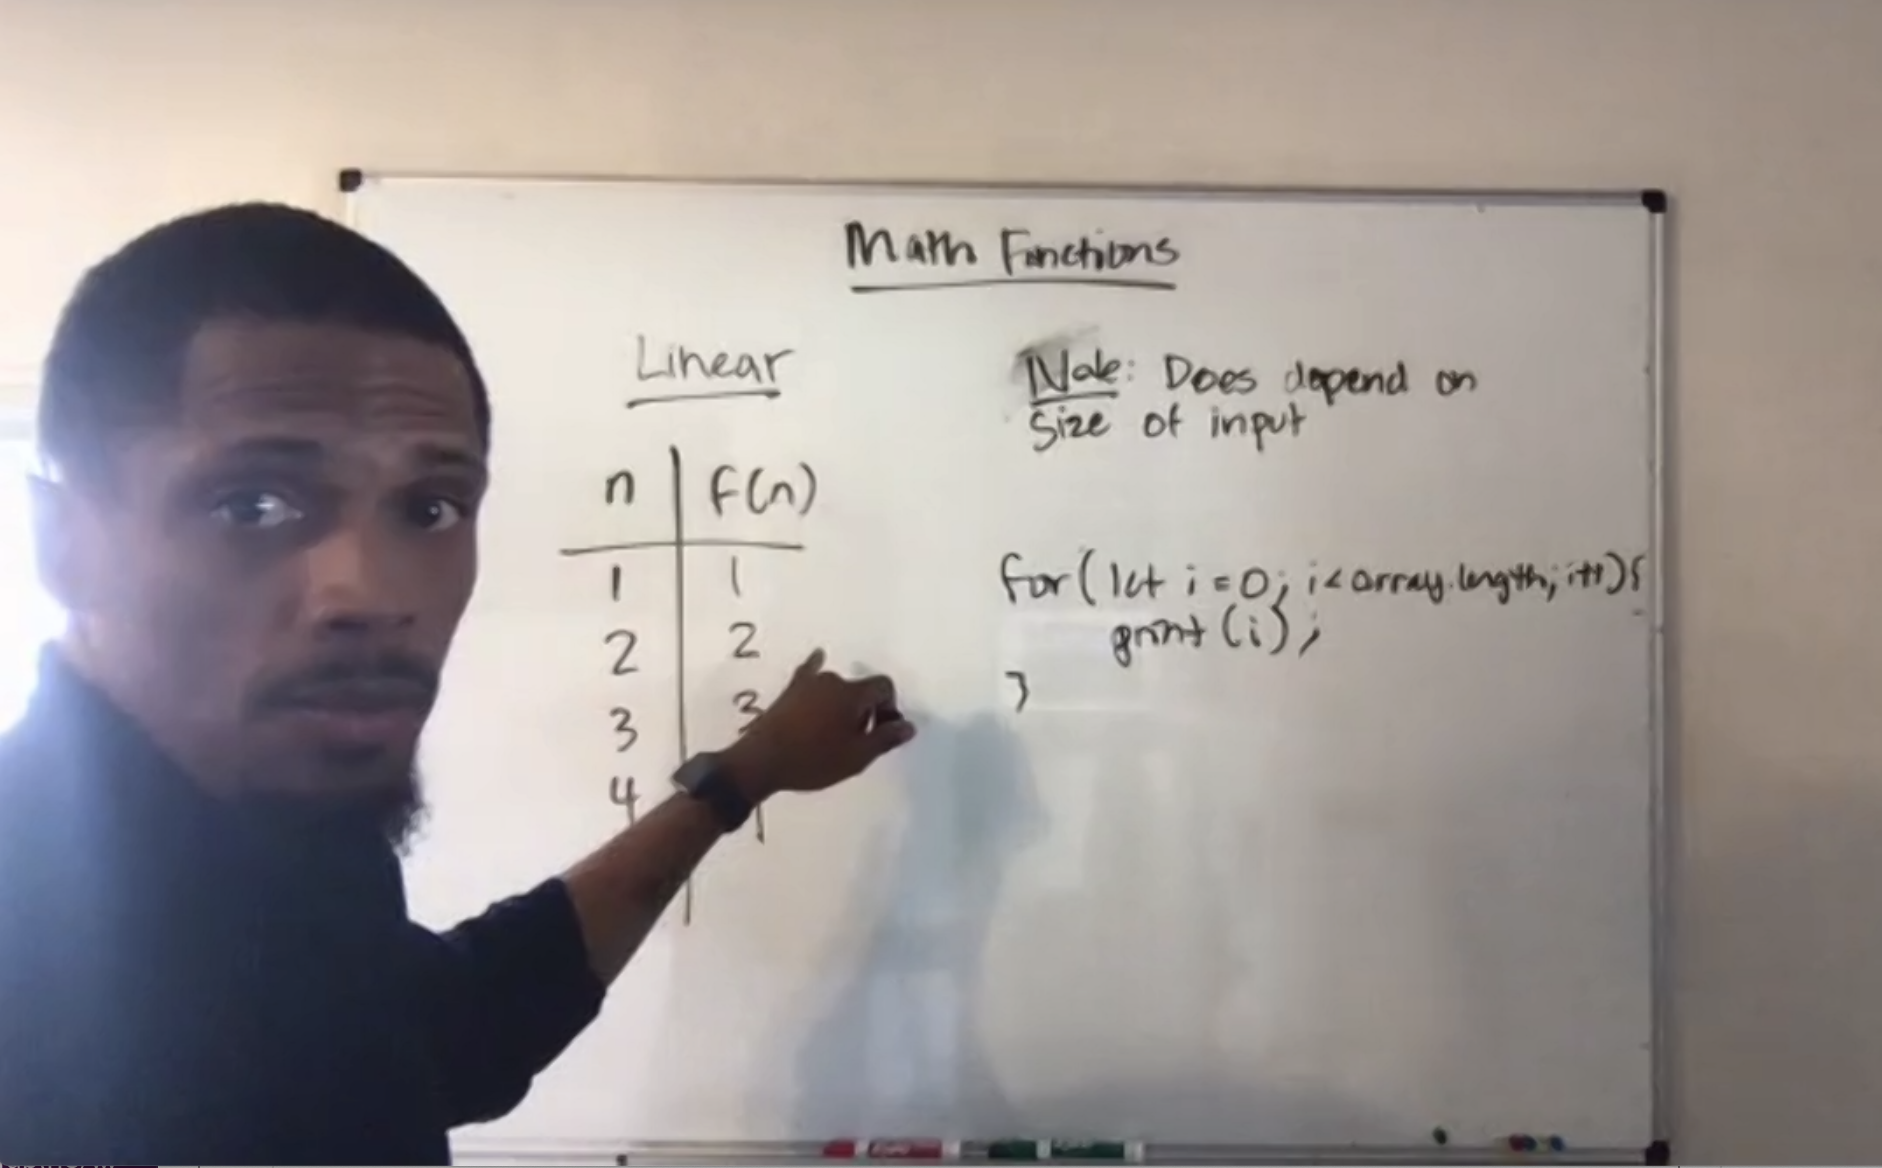 Math Functions
Linear
n f(n)
1 1
2 2
3 3
4
Note: Does depend on
Size of input
for(let i=0; i<array.length; i++){
print(i);
}